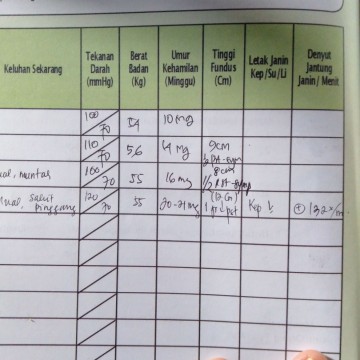 Keluhan Sekarang
Tekanan
Darah
(mmHg)
Berat
Badan
(Kg)
Umur
Kehamilan
(Minggu)
Tinggi
Fundus
(Cm)
Letak Janin
Kep/Su/Li
Denyut
Jantung
Janin / Menit
100/70 54 10 mg
110/70 56 14 mg 9cm
mual, muntas 100/70 55 16 mg 8cm
mual, sakit
pinggang 120/70 55 20-21 mg Kep (+) 132 x/m